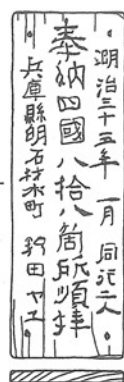 明治三十五年 一月 同行二人
奉納四國八拾八箇所順拜
兵庫縣明石材木町